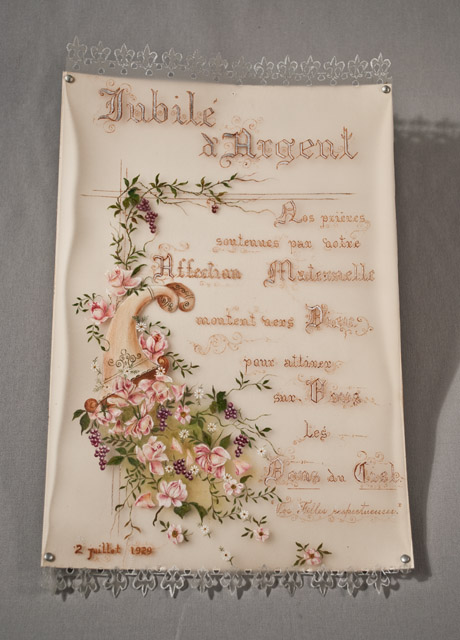 Jubilé
d'Argent
Nos prières,
soutenues par votre
Affection Maternelle
montent vers Dieu
pour attirer
sur Vous
Les
Dons du Ciel.
Vos Filles respectueuses.
2 juillet 1929